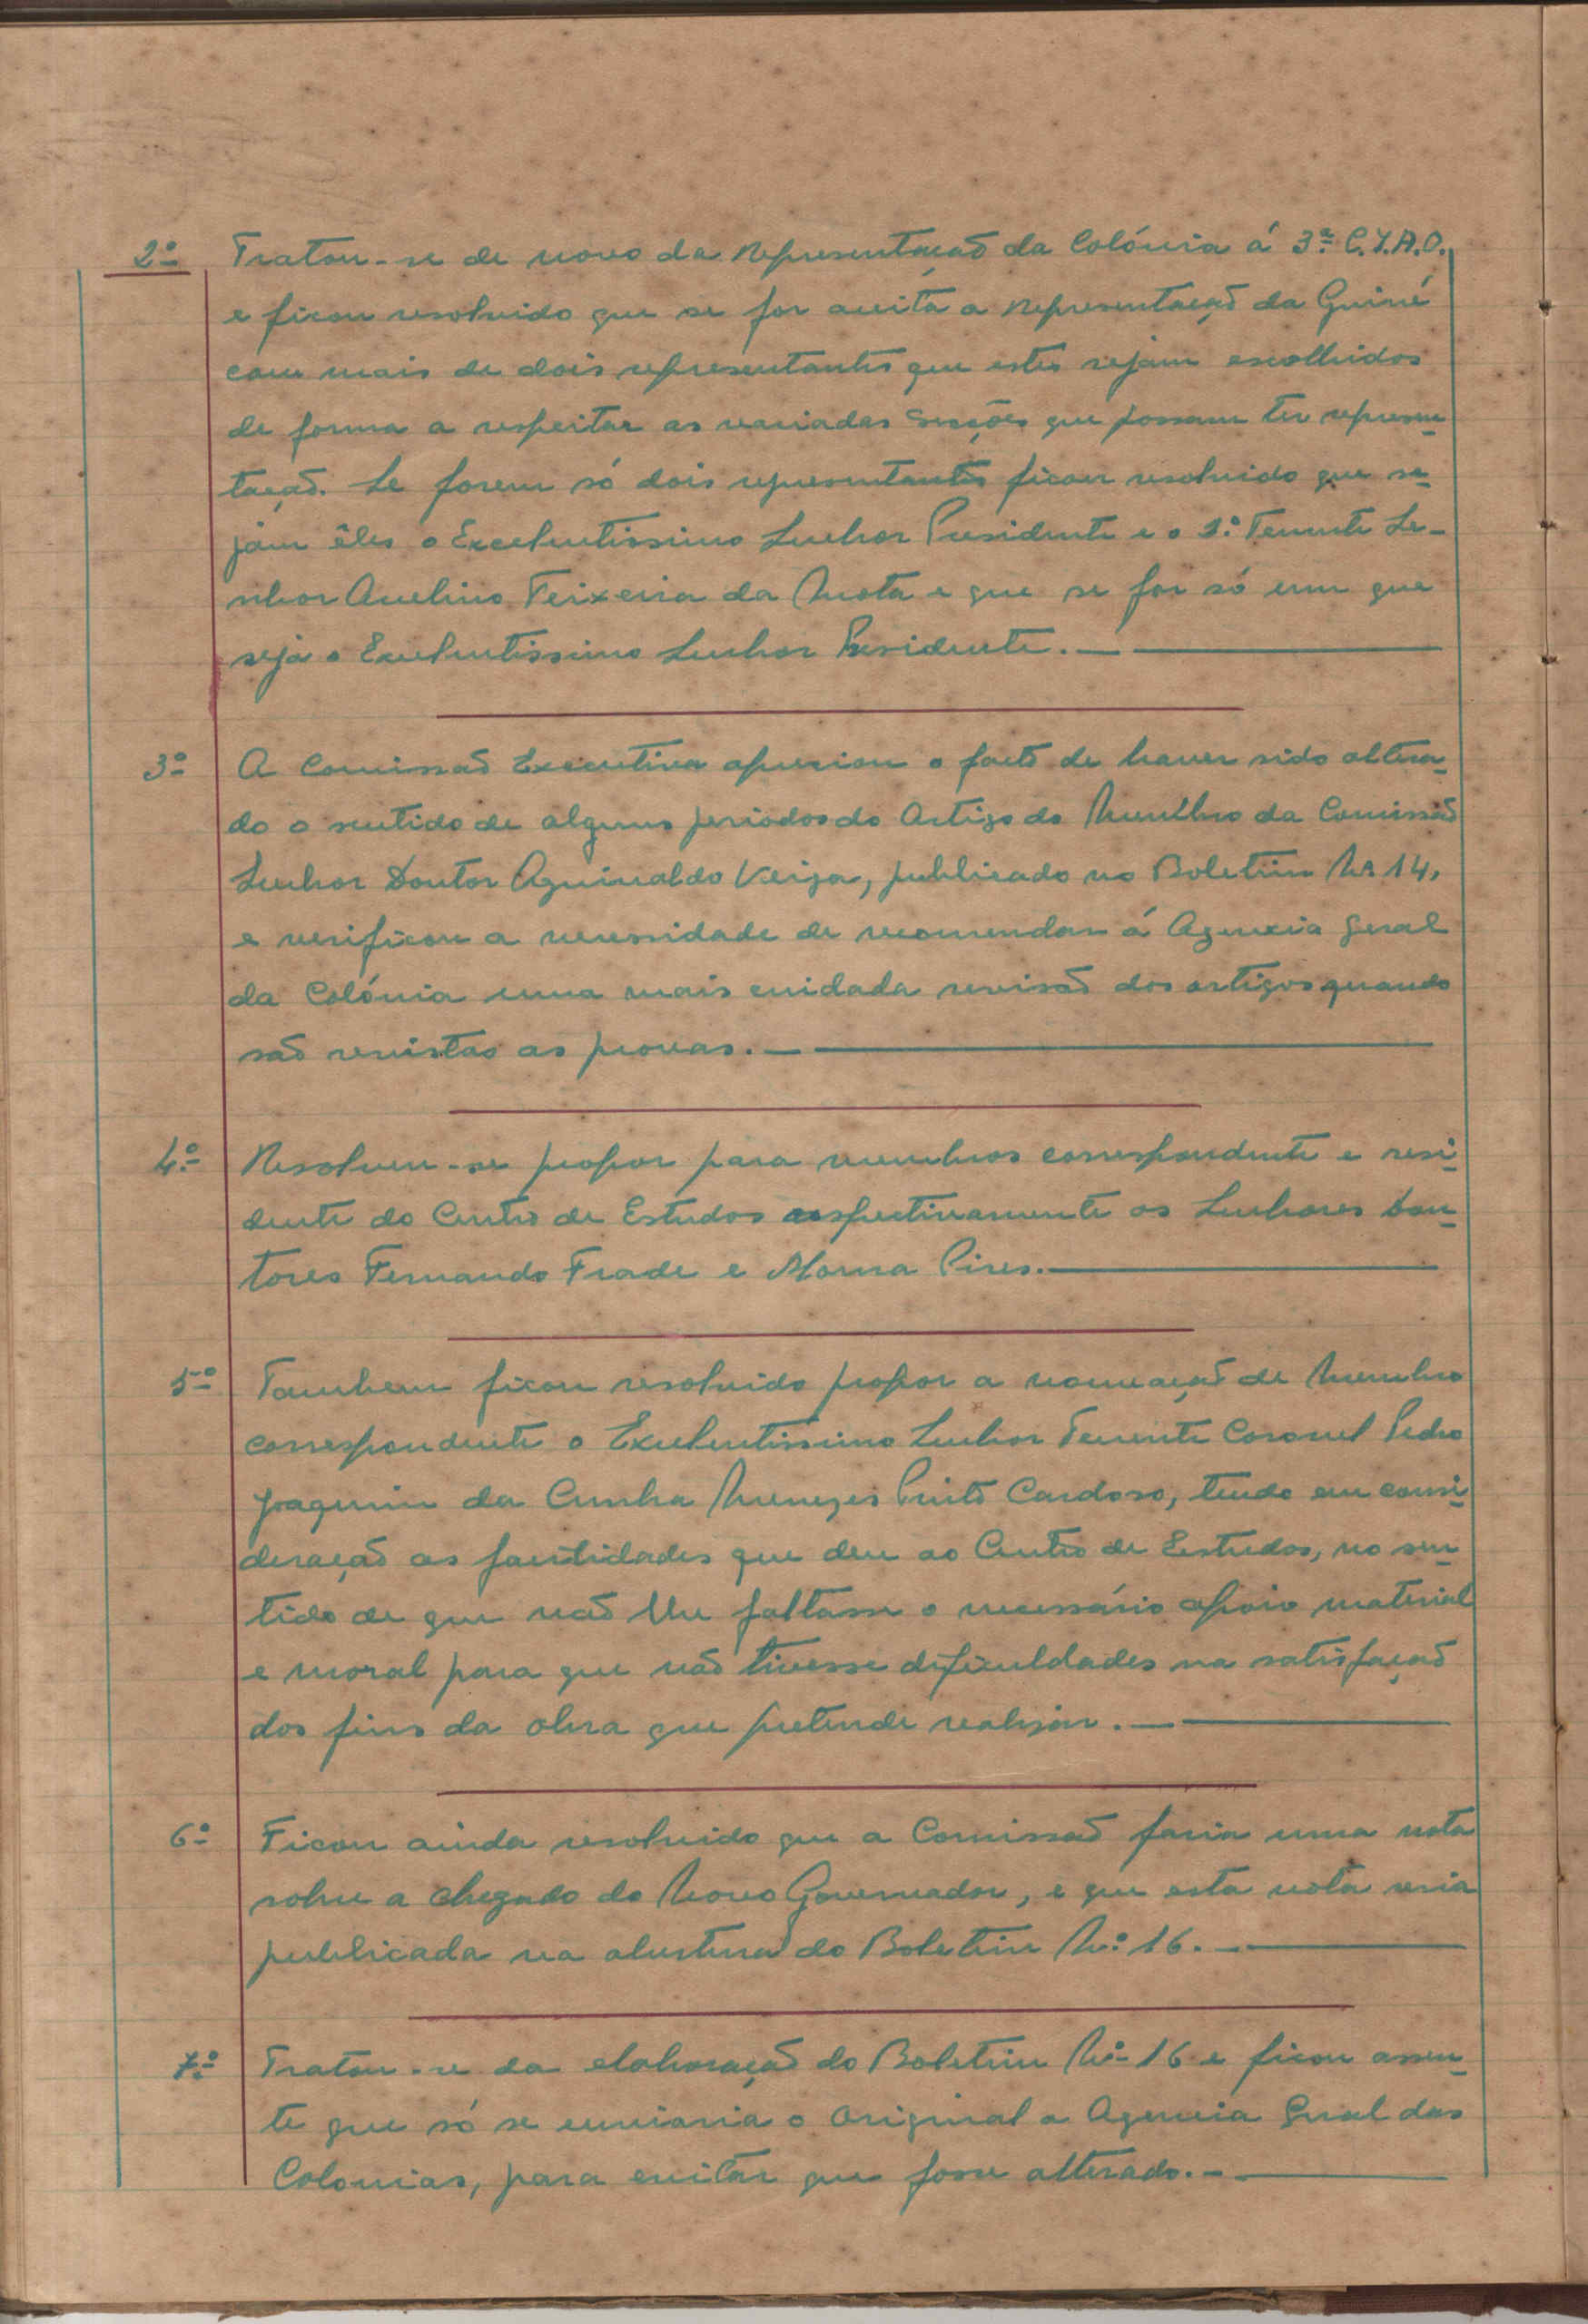 2º Tratou-se de novo da Representação da Colónia á 3ª C.I.A.O.,
e ficou resolvido que se for aceita a representação da Guiné
com mais de dois representantes que estes sejam escolhidos
de forma a respeitar as variadas Secções que possam ter represen-
tação. Se forem só dois representantes ficou resolvido que se-
jam êles o Excelentissimo Senhor Presidente e o 1º Tenente Se-
nhor Avelino Teixeira da Mota e que se for só um que
seja o Excelentissimo Senhor Presidente. —
3º A Comissão Executiva apreciou o facto de haver sido altera-
do o sentido de alguns periodos do Artigo do Membro da Comissão
Senhor Doutor Aguinaldo Veiga, publicado no Boletim Nº 14,
e verificou a necessidade de recomendar á Agencia Geral
da Colónia uma mais cuidada revisão dos artigos quando
são revistas as provas. —
4º Resolveu-se propor para membros correspondente e resi-
dente do Centro de Estudos respectivamente os Senhores Dou-
tores Fernando Frade e Morna Pires. —
5º Tambem ficou resolvido propor a nomeação de Membro
correspondente o Excelentissimo Senhor Tenente Coronel Pedro
Joaquim da Cunha Menezes Pinto Cardoso, tendo em consi-
deração as facilidades que deu ao Centro de Estudos, no sen-
tido de que não lhe faltasse o necessário apoio material
e moral para que não tivesse dificuldades na satisfação
dos fins da obra que pretende realizar. —
6º Ficou ainda resolvido que a Comissão faria uma nota
sobre a chegada do Novo Governador, e que esta nota seria
publicada na abertura do Boletim Nº 16. —
7º Tratou-se da elaboração do Boletim Nº 16 e ficou assen-
te que só se enviaria o Original a Agencia Geral das
Colonias, para evitar que fosse alterado. —